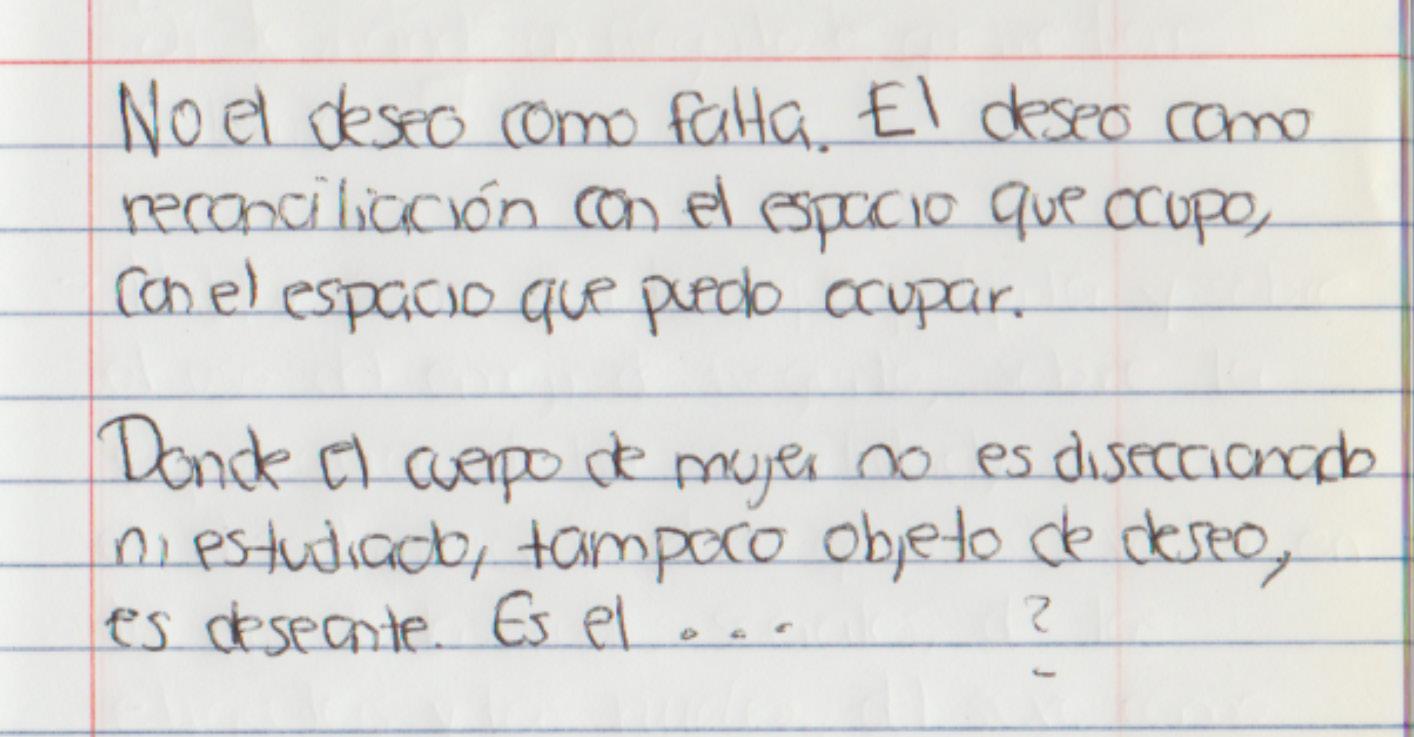 No el deseo como falta. El deseo como
reconciliación con el espacio que ocupo,
con el espacio que puedo ocupar.
Donde el cuerpo de mujer no es diseccionado
ni estudiado, tampoco objeto de deseo,
es deseante. Es el ... ?